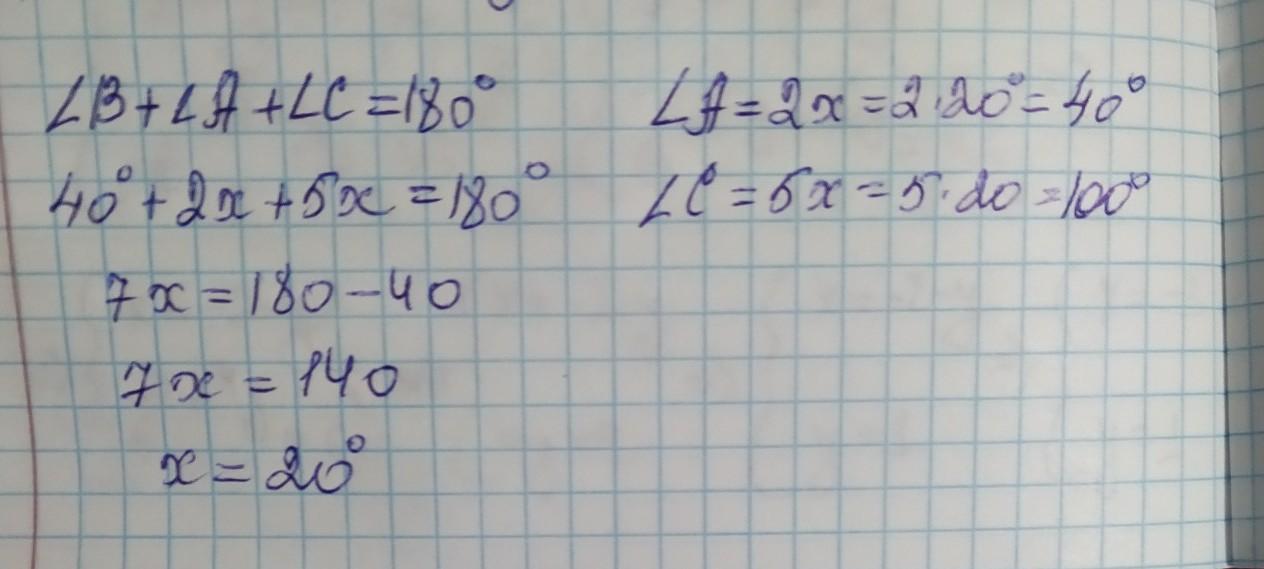 ∠B+∠A+∠C=180°
40°+2x+5x=180°
7x=180-40
7x=140
x=20°
∠A=2x=2·20°=40°
∠C=5x=5·20=100°